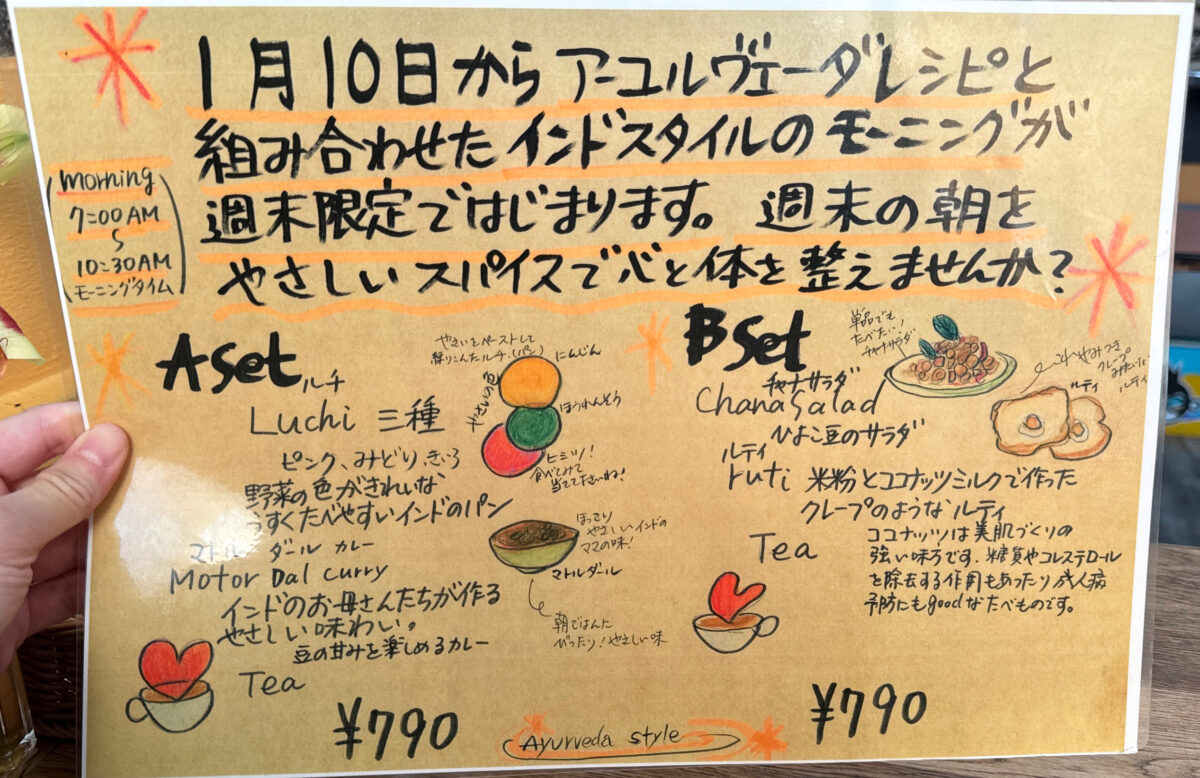 1月10日から アーユルヴェーダレシピと
組み合わせた インドスタイルの モーニングが
週末限定ではじまります。 週末の朝を
やさしい スパイスで心と体を整えませんか?
morning
7:00AM
〜
10:30AM
モーニングタイム
A set
ルチ
Luchi 三種
ピンク、みどり、きいろ
野菜の色がきれいな
うすくたべやすいインドのパン
やさいをペーストして
練りこんだルチ(パン)
やさいの色
にんじん
ほうれんそう
ヒミツ!
食べてみて
当ててくださいね!
マトル ダール カレー
Motor Dal curry
インドのお母さんたちが作る
やさしい味わい。
豆の甘みを楽しめるカレー
ほっこり
やさしいインドの
ママの味!
マトルダール
朝ごはんに
ぴったり!やさしい味
Tea
¥790
B set
チャナサラダ
Chana Salad
ひよこ豆のサラダ
単品でも
たべたい!
チャナサラダ
クレープ
みたいな
ルティ
ルティ
ルティ
ruti 米粉とココナッツミルクで作った
クレープのような ルティ
ココナッツは美肌づくりの
強い味方です。糖質やコレステロール
を除去する作用もあったり成人病
予防にもgoodなたべものです。
Tea
¥790
Ayurveda style